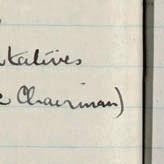 tatives
Chairman)